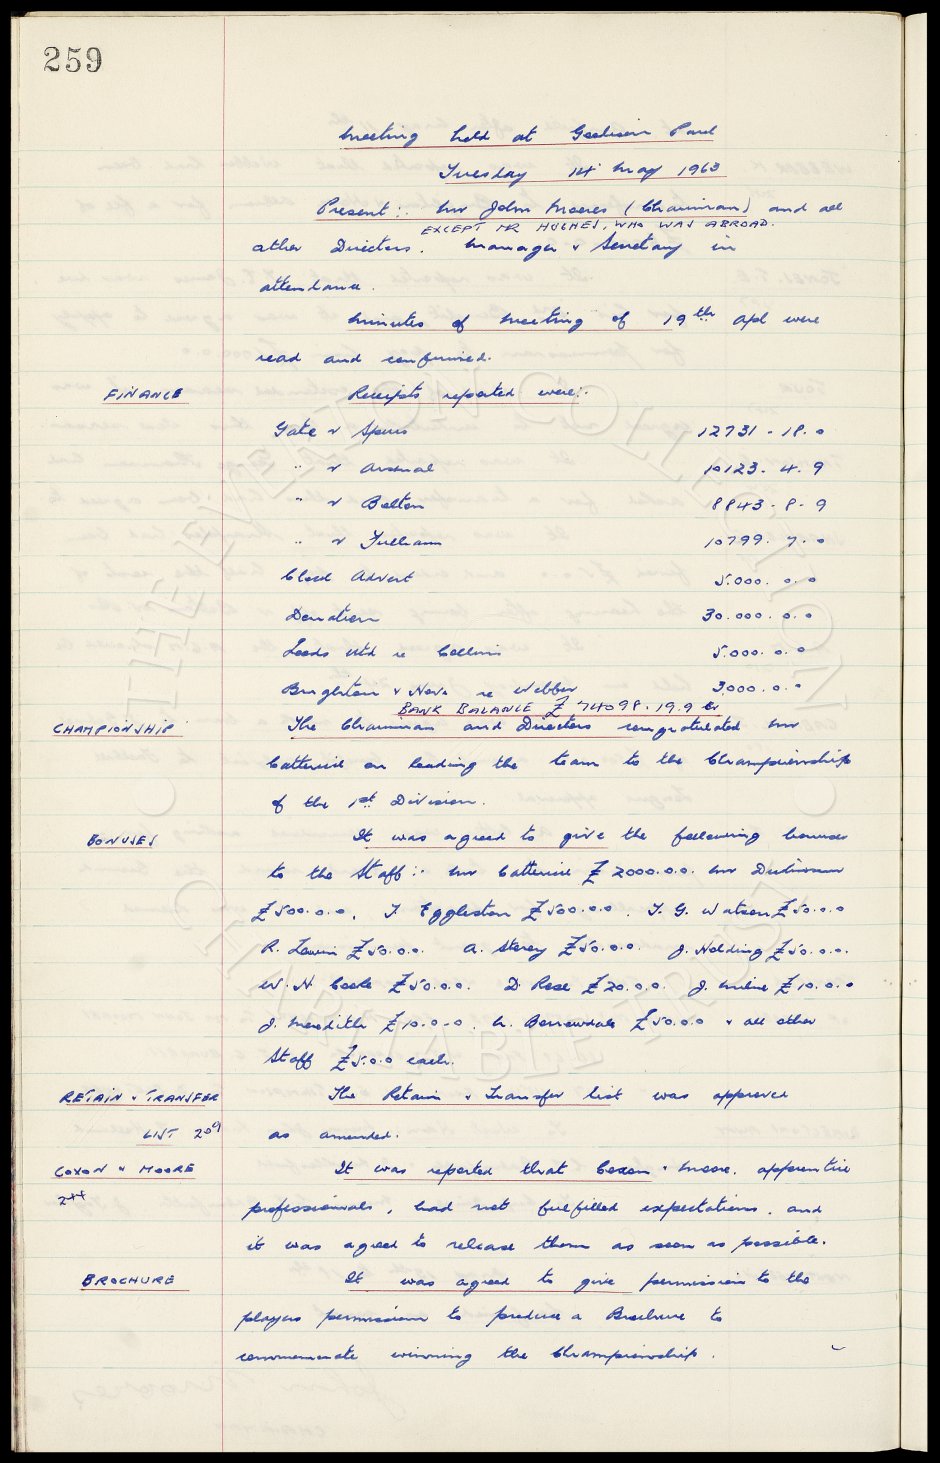 259
Meeting held at Goodison Park
Tuesday 14th May 1963
Present :- Mr John Moores (Chairman) and all
EXCEPT MR HUGHES, WHO WAS ABROAD.
other Directors. Manager & Secretary in
attendance.
Minutes of Meeting of 19th Apl were
read and confirmed.
FINANCE Receipts reported were:-
Gate v Spurs 12731 - 18. 0
" v Arsenal 10123. 4. 9
" v Bolton 8843 - 8 - 9
" v Fulham 10799. 7. 0
Closed Advert 5.000. 0. 0
Donation 30.000. 0. 0
Leeds Utd re Collins 5.000. 0. 0
Brighton & Hove re Webber 3.000. 0. 0
BANK BALANCE £ 74098. 19. 9 Cr
CHAMPIONSHIP The Chairman and Directors congratulated Mr
Catterick on leading the team to the Championship
of the 1st Division.
BONUSES It was agreed to give the following bonuses
to the Staff :- Mr Catterick £2000.0.0. Mr Dickinson
£500.0.0. T. Eggleston £500.0.0. T. G. Watson £50.0.0
R. Lewin £50.0.0. A. Storey £50.0.0. J. Holding £50.0.0.
W. H. Cooke £50.0.0. D. Rose £20.0.0. J. Milne £10.0.0
J. Meredith £10.0.0. H. Borrowdale £50.0.0 & all other
Staff £5.0.0 each.
RETAIN & TRANSFER The Retain & Transfer list was approved
LIST 209 as amended.
COXON & MOORE It was reported that Coxon & Moore, apprentice
244
professionals, had not fulfilled expectations, and
it was agreed to release them as soon as possible.
BROCHURE It was agreed to give permission to the
players permission to produce a Brochure to
commemorate winning the Championship.
THE EVERTON COLLECTION
CHARITABLE TRUST